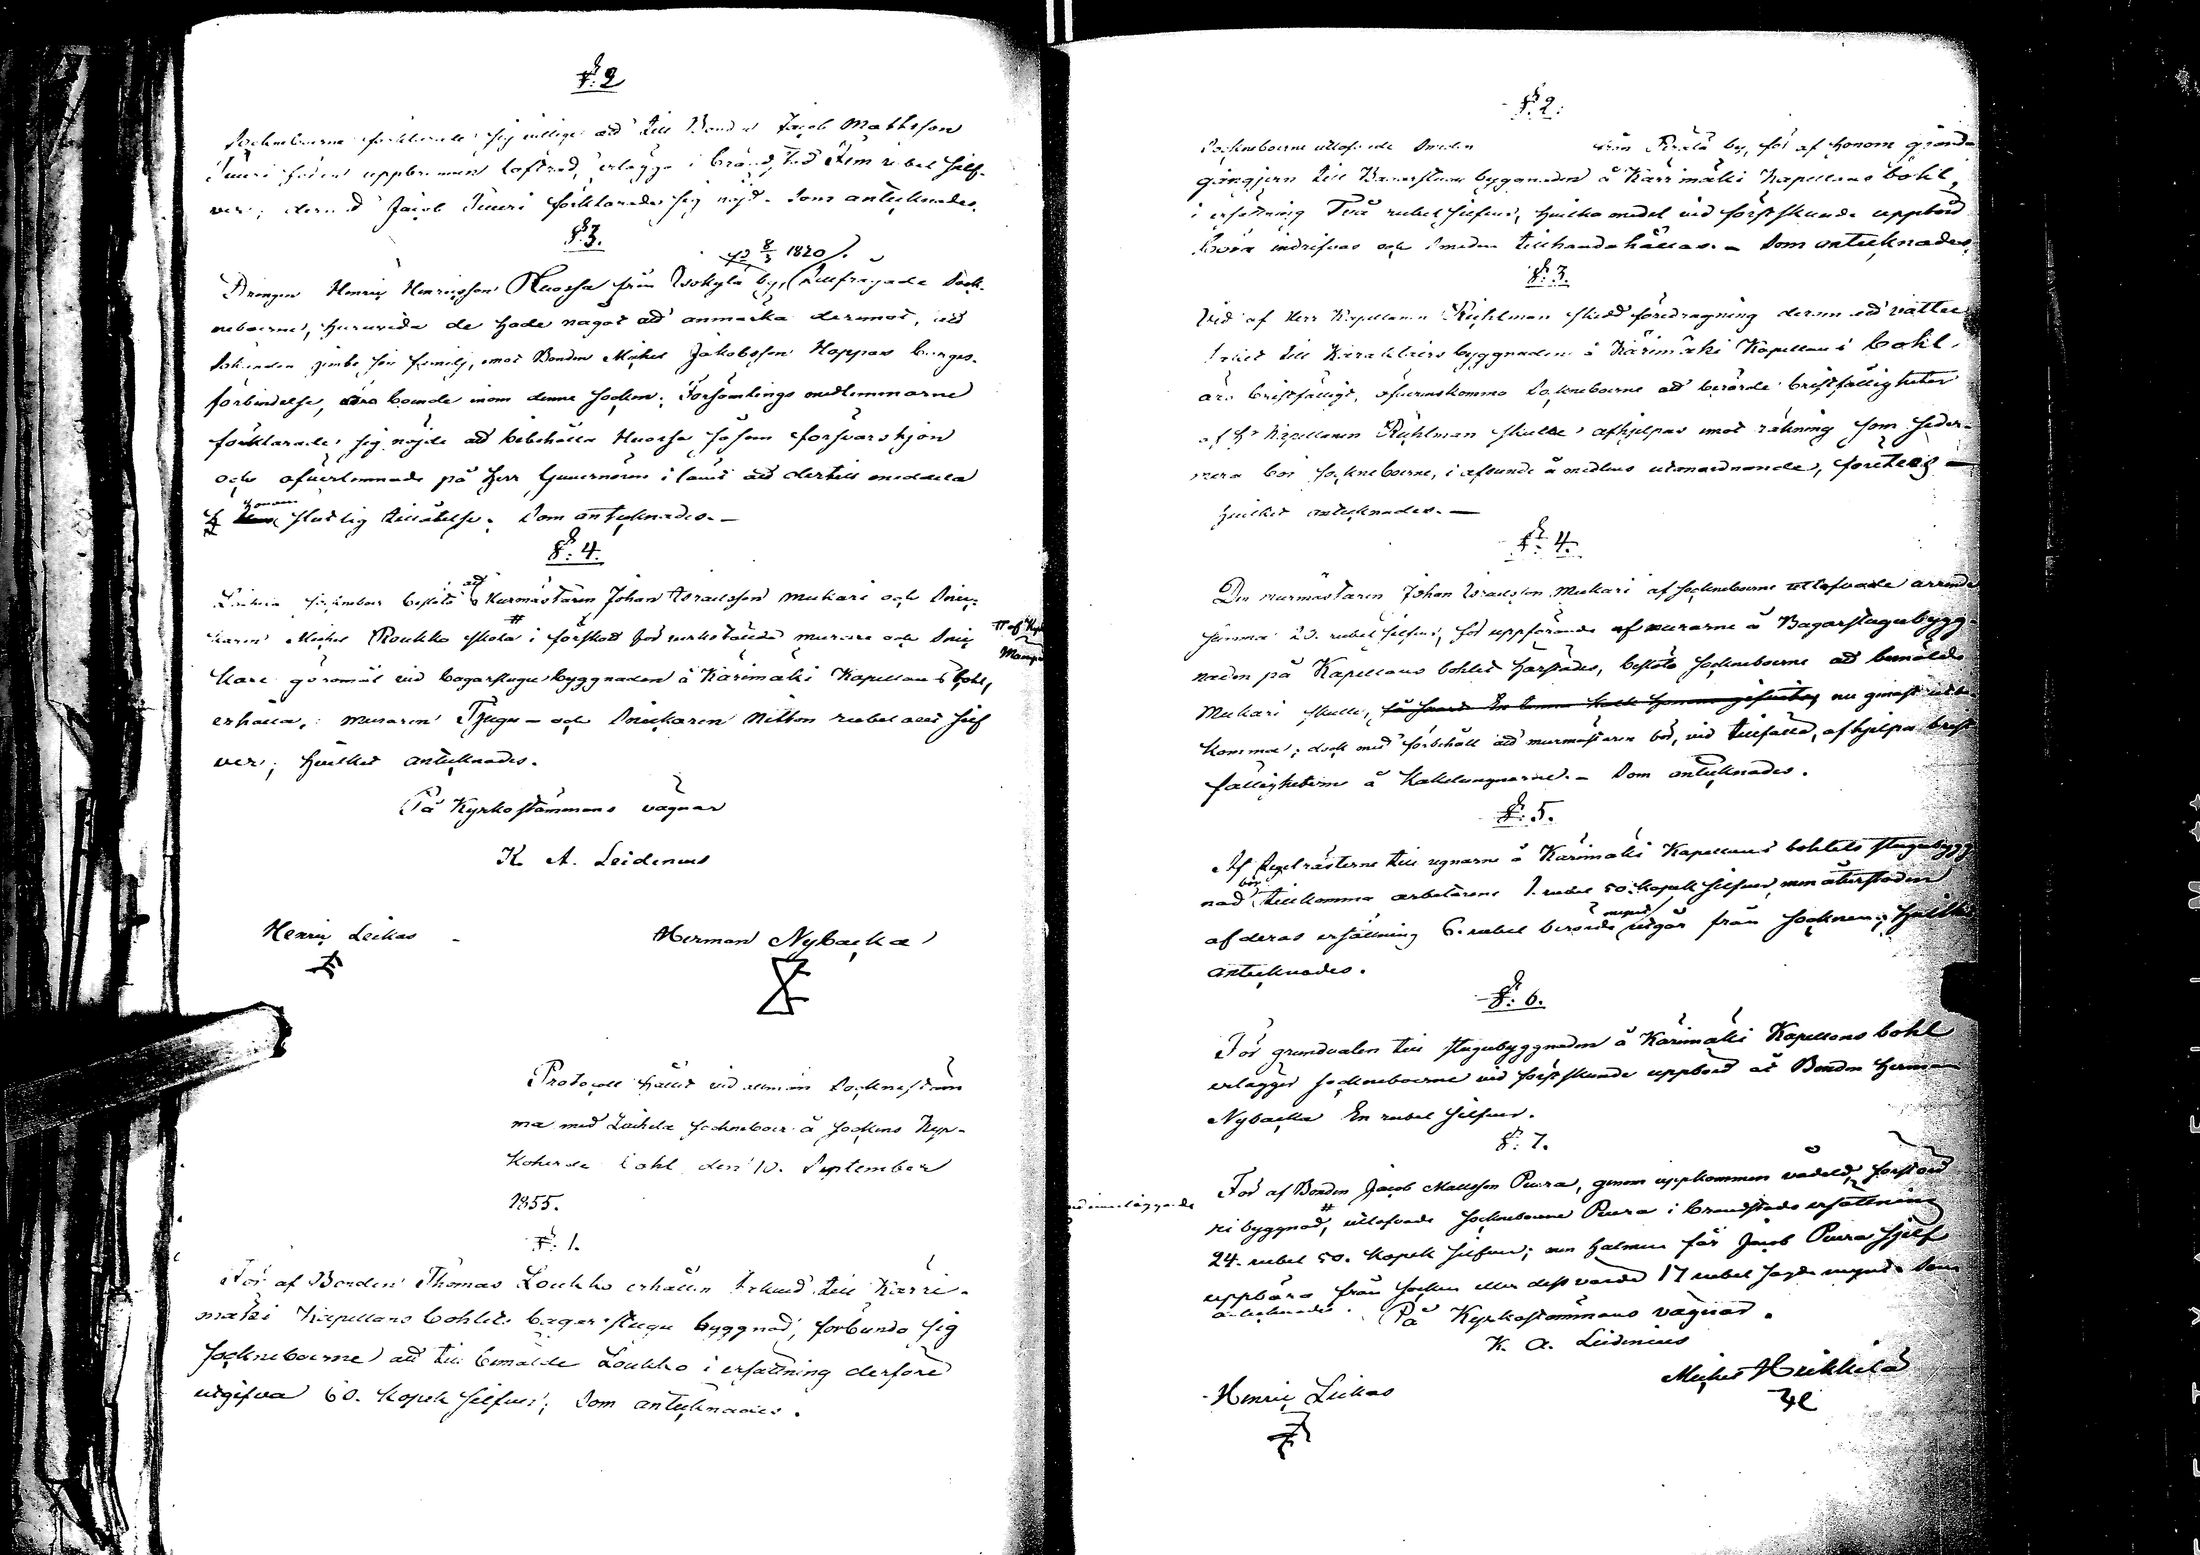 §. 2
Sockneboerne förklarade sig villige att till Bonden Jacob Mattsson
Tuuri för en uppbrunnen loftrad, erlägga i brand, Fem rubel silf-
ver; dermed Jacob Tuuri förklarade sig nöjd. Som antecknades.
§. 3.
8/3 1820).
Drengen Henric Henricsson Huossa från Isokylä by, (tillfrågade Sock-
neboerne, huruvida de hade något att anmärka deremot, att
Sökanden jemte sin familj, emot Bonden Michel Jakobsson Hoppas borges-
förbindelse, boende inom denne socken; Församlings medlemmarne
förklarade sig nöjde att bibehålla Huossa såsom försvarshjon
och öfverlemnade på Herr Guvernören i länet att dertill meddela
honom slutlig tillåtelse. Som antecknades. —
§. 4.
Laihela sockneboer beslöto att Murmästaren Johan Israelsson Mukari och Snic-
karen Michel Roukko skola # i förskott för verkstälde murare och Snic
kare göromål vid bagarstugu byggnaden å Kärimäki Kapellans bohl,
# af
erhålla, muraren Tjugu – och Snickaren Nitton rubel allt silf
ver; hvilket antecknades.
På Kyrkostämmans vägnar
K. A. Leidenius
Henric Leikas
Herman Nybacka
Protocoll hållit vid allmän Socknestäm
ma med Laihela sockneboer å sockens Kyr-
koherde bohl den 10. September
1855.
§. 1.
För af Bonden Thomas Loukko erhållen till Kärri-
mäki Kapellans bohlets bagarstugu byggnad, förbundo sig
sockneboerne att till bemälde Loukko i ersättning derföre
utgifva 60. kopek silfver; Som antecknades.
§. 2:
Socknebоerne utlofvade Smeden från Perälä by, för af honom gjorda
gångjern till Bagarstugu byggnaden å Kärrimäki Kapellans bohl,
i ersättning Två rubel silfver, hvilka medel vid förstskunde uppbörd
böra indrifvas och Smeden tillhandahållas. – Som antecknades.
§. 3.
Vid af Herr Kapellanen Kuhlman skedd föredragning derom att
taket till Karaktersbyggnaden å Kärimäki Kapellans bohl,
äro bristfälligt, öfverenskommo Sockneboerne att berörde bristfälligheter
af Hr Kapellanen Kuhlman skulle afhjelpas emot räkning som seder-
mera bör sockneboerne, i afseende å medlens utanordnande, företes —
hvilket antecknades. —
§. 4.
Den murmästaren Johan Israelsson Mukari af sockneboerne utlofvade
summa 20. rubel silfver, för uppförande af murarne å Bagarstugubygg-
naden på Kapellans bohlet härstädes, beslöto sockneboerne att bemälde
Mukari skulle, nu genast
komma; dock med förbehåll att murmästaren bör, vid tillfälle, afhjelpa brist
fälligheterne å Kakelungnarne. – Som antecknades.
§. 5.
Af till ugnarne å Kärimäki Kapellans bohlets stugubygg
nad bör tillkomma arbetarene 1. rubel 50. kopek silfver, men återstoden
af deras ersättning 6. rubel berörde mynt utgår från socknen; hvilket
antecknades.
§. 6.
För grundvalen till stugubyggnaden å Kärimäki Kapellans bohl
erlägger sockneboerne vid förstskunde uppbörd åt Bonden Herman
Nybacka En rubel silfver.
§. 7.
För af Bonden Jacob Mattsson Puura, genom uppkommen vådeld, förstörd
ri byggnad, # utlofvade sockneboerne Puura i brandstods ersättning
med inneliggande
24. rubel 50. kopek silfver; men halmen får Jacob Puura sjelf
uppbära från socknen eller dess värde 17 rubel sagde mynt. Som
antecknades. På Kyrkostämmans vägnar.
K. A. Leidenius
Henric Leikas
Michel Heikkilä